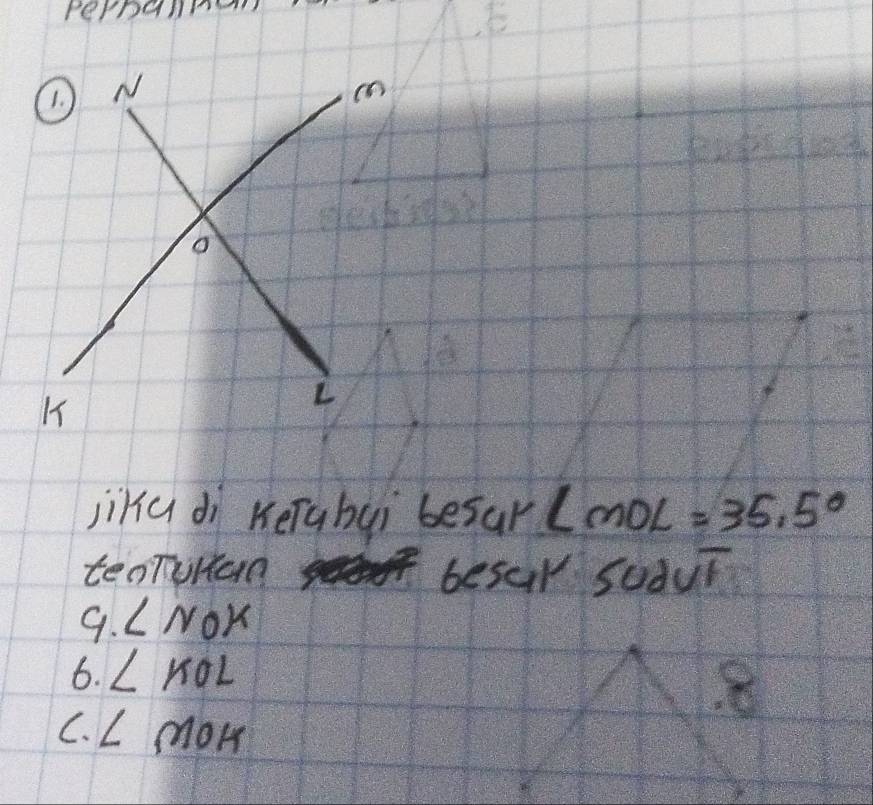 1.
N
M
O
K
L
jika di Ketahui besar ∠ MOL = 35,5°
tentukan besar sudut
a. ∠ NOK
b. ∠ KOL
c. ∠ MOK
8.